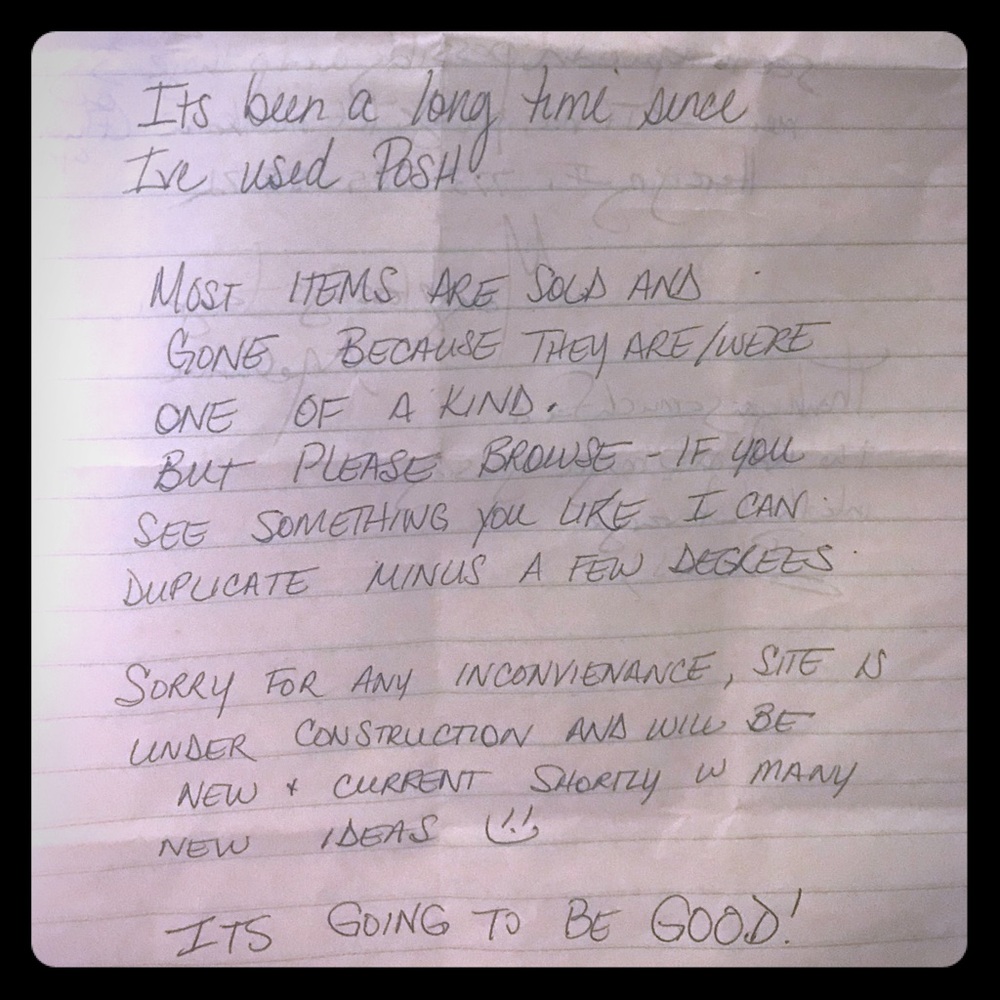 Its been a long time since
I've used POSH!
MOST ITEMS ARE SOLD AND
GONE BECAUSE THEY ARE/WERE
ONE OF A KIND.
BUT PLEASE BROWSE - IF YOU
SEE SOMETHING YOU LIKE I CAN
DUPLICATE MINUS A FEW DEGREES
SORRY FOR ANY INCONVIENANCE, SITE IS
UNDER CONSTRUCTION AND WILL BE
NEW + CURRENT SHORTLY W MANY
NEW IDEAS
ITS GOING TO BE GOOD!